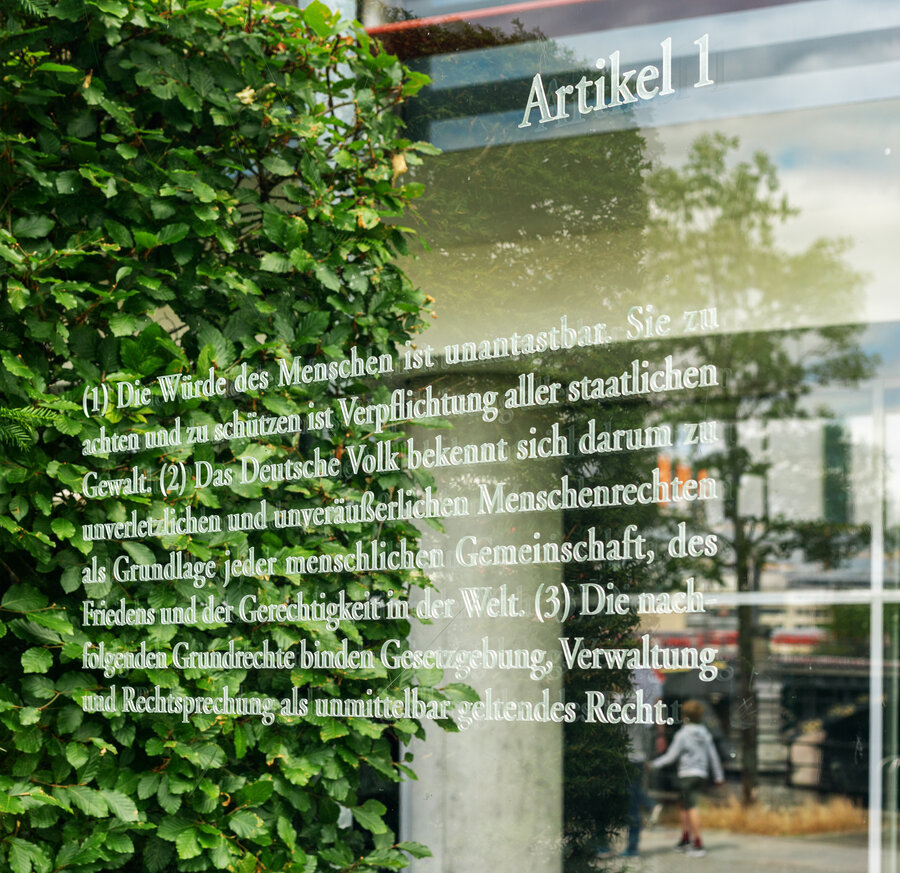 Artikel 1
(1) Die Würde des Menschen ist unantastbar. Sie zu
achten und zu schützen ist Verpflichtung aller staatlichen
Gewalt. (2) Das Deutsche Volk bekennt sich darum zu
unverletzlichen und unveräußerlichen Menschenrechten
als Grundlage jeder menschlichen Gemeinschaft, des
Friedens und der Gerechtigkeit in der Welt. (3) Die nach-
folgenden Grundrechte binden Gesetzgebung, Verwaltung
und Rechtsprechung als unmittelbar geltendes Recht.